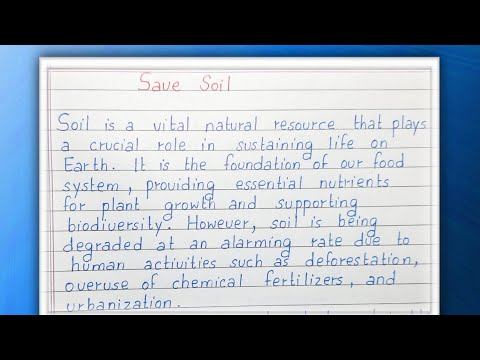 Save Soil
Soil is a vital natural resource that plays
a crucial role in sustaining life on
Earth. It is the foundation of our food
system, providing essential nutrients
for plant growth and supporting
biodiversity. However, soil is being
degraded at an alarming rate due to
human activities such as deforestation,
overuse of chemical fertilizers, and
urbanization.